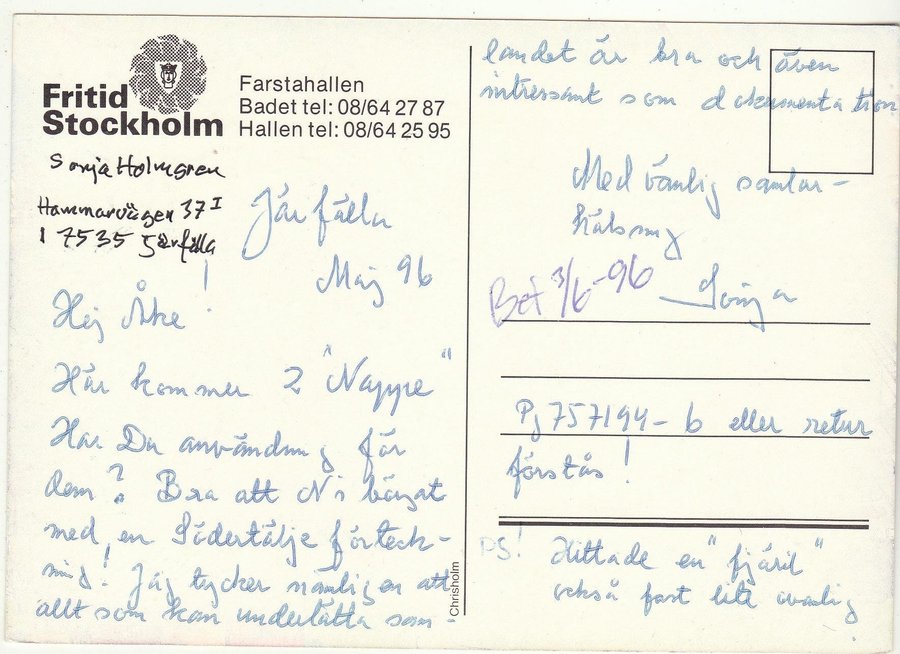 Fritid
Stockholm
Farstahallen
Badet tel: 08/64 27 87
Hallen tel: 08/64 25 95
Sonja Holmgren
Hammarvägen 37 I
17535 Järfälla
Järfälla
Maj 96
Hej Åke!
Här kommer 2 "Nappe"
Har Du användning för
dem? Bra att Ni börjat
med en Södertälje förteck-
ning! Jag tycker nämligen att
allt som kan underlätta sam-
landet är bra och även
intressant som dokumentation
Med vänlig samlar-
hälsning
Sonja
Bet 3/6-96
Pg 757194-6 eller retur
förstås!
PS! Hittade en "fjäril"
också fast lite ovanlig
Chrisholm